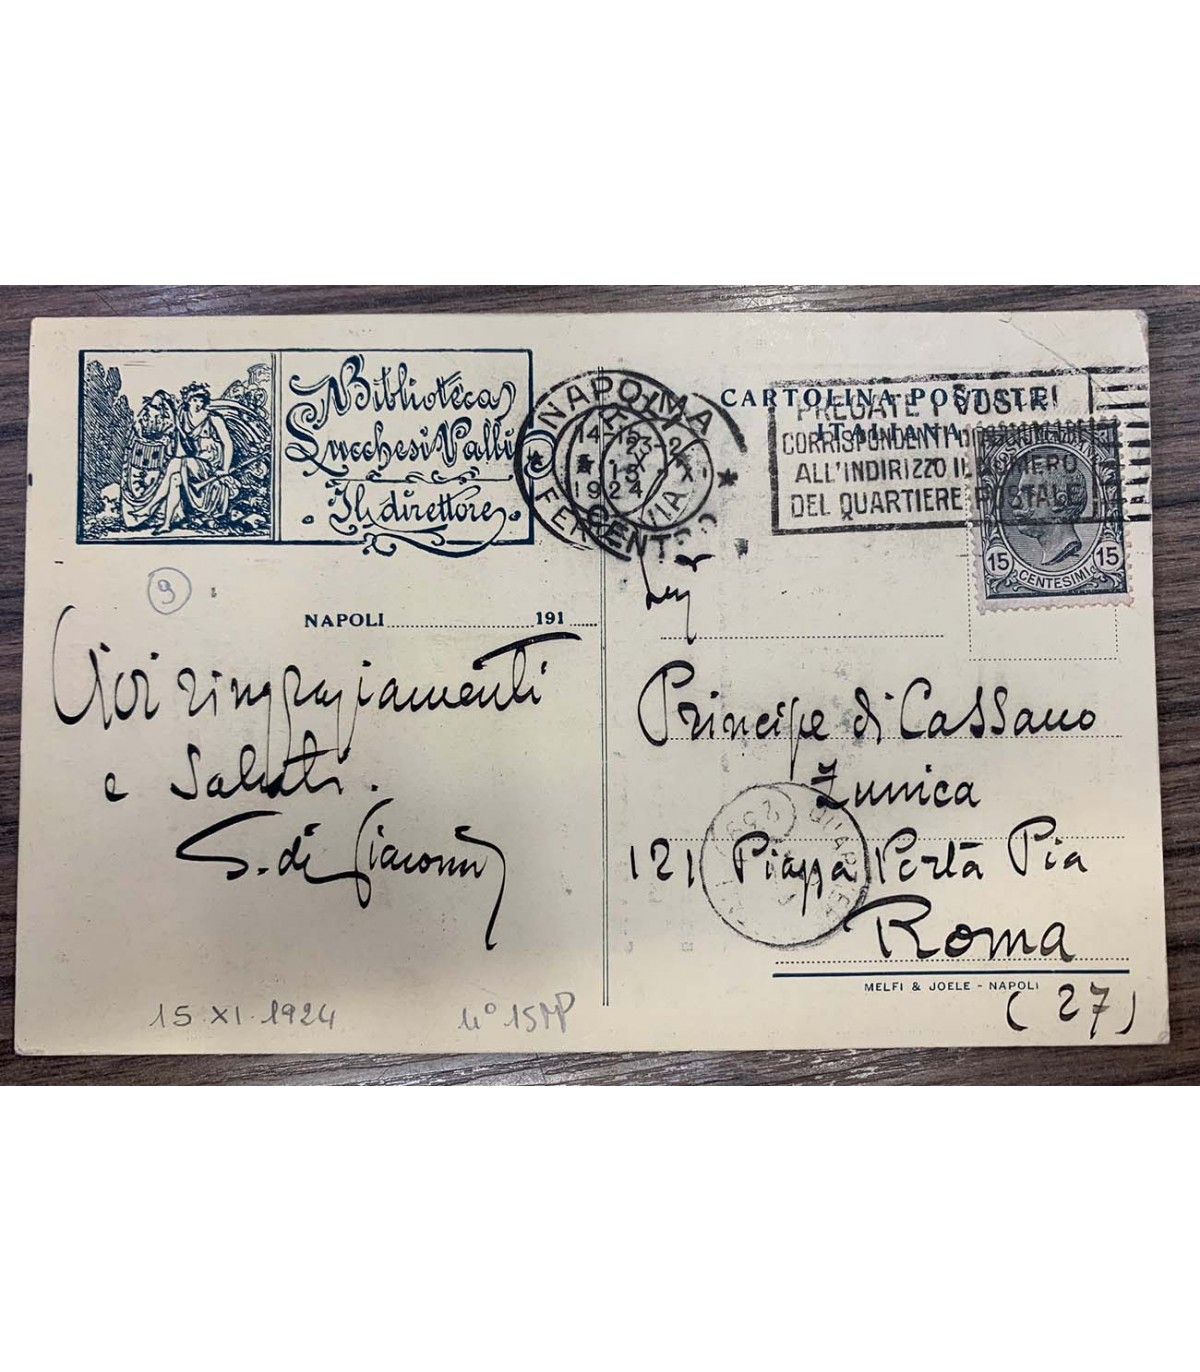 Biblioteca
Lucchesi Palli
Il direttore
9
NAPOLI 191
Vivi ringraziamenti
e saluti.
S. di Giacomo
15.XI.1924
NAPOLI
FERROVIA
14-15
15 XI
1924
ROMA
CENTRO
CARTOLINA POSTALE
ITALIANA
PREGATE I VOSTRI
CORRISPONDENTI DI AGGIUNGERE
ALL'INDIRIZZO IL NUMERO
DEL QUARTIERE POSTALE
15 CENTESIMI 15
Principe di Cassano
Zunica
121 Piazza Porta Pia
Roma
MELFI & JOELE - NAPOLI
(27)